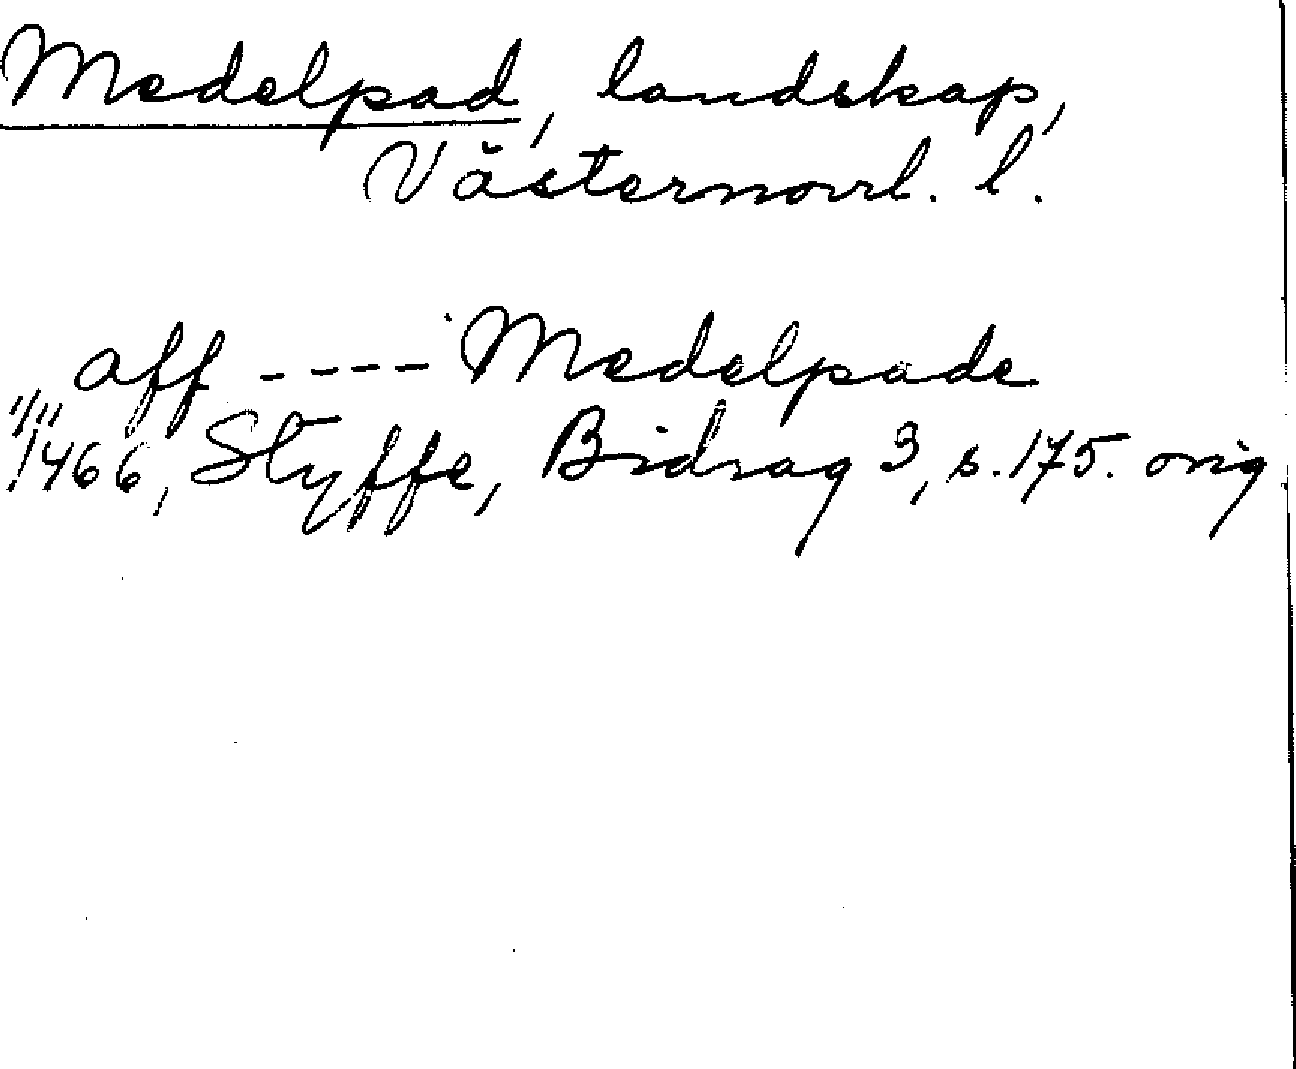 Medelpad, landskap,
Västernorrl. l.
aff ---- Medelpade
1/11 1466, Styffe, Bidrag 3, s. 175. orig.